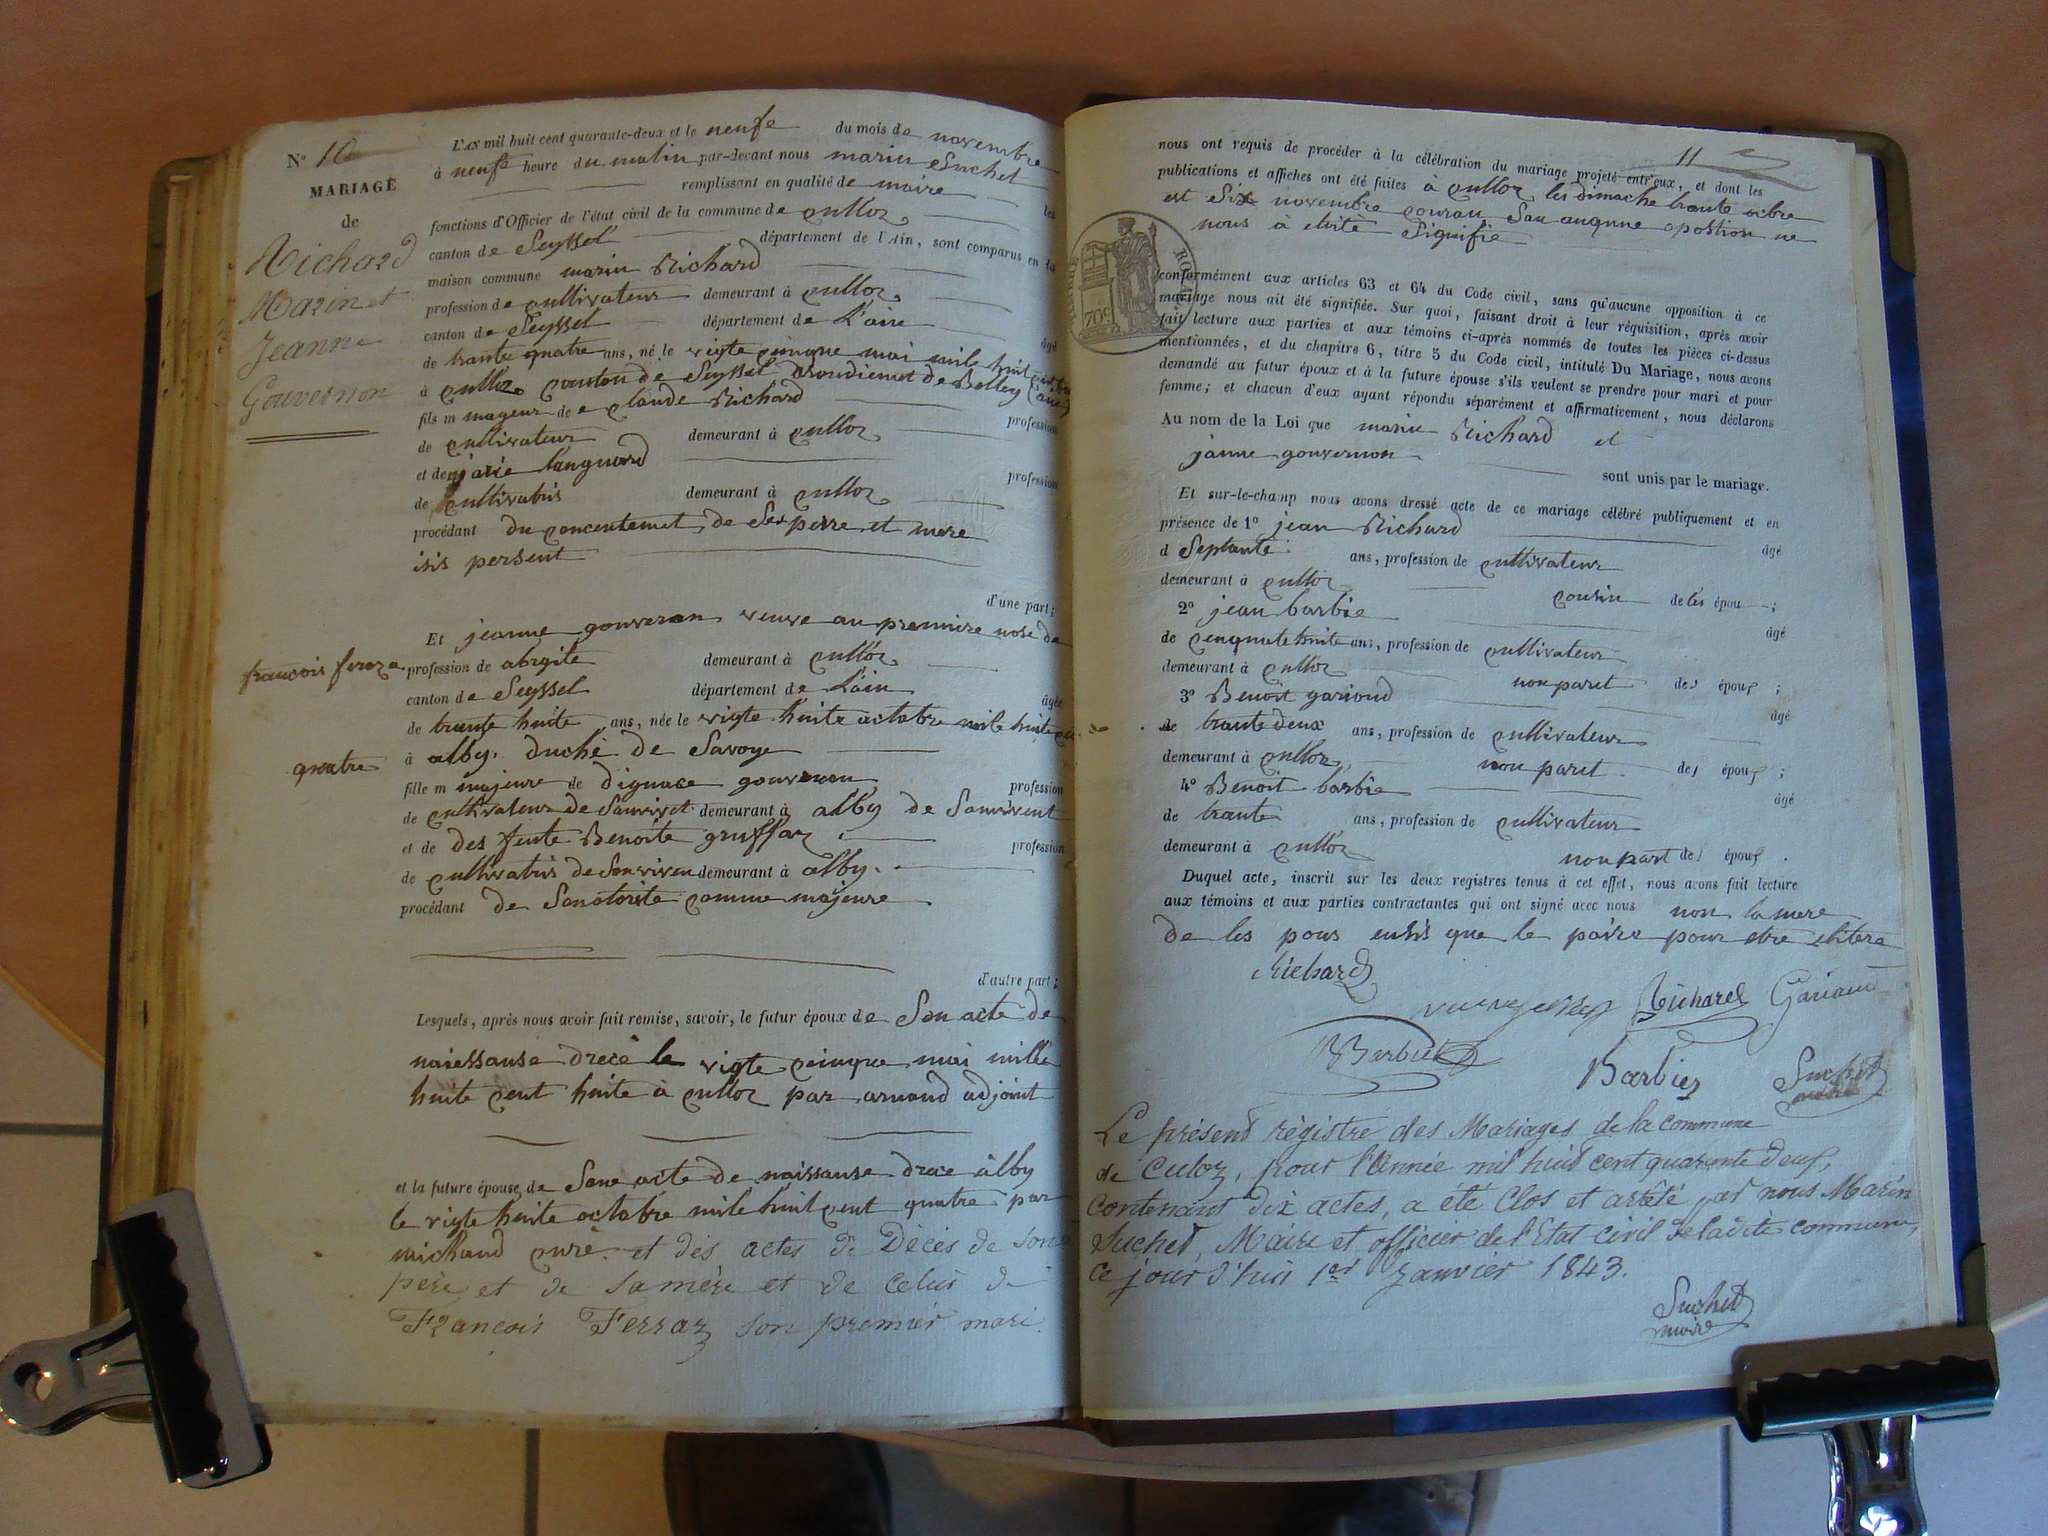 N° 10
MARIAGE
de
Richard
Marin et
Jeanne
Gouvernon
L'AN mil huit cent quarante-deux et le neufe du mois de novembre
à neufe heure du matin par-devant nous marin Suchet
remplissant en qualité de maire les
fonctions d'Officier de l'état civil de la commune de culloz
canton de Seyssel département de l'Ain, sont comparus en la
maison commune marin Richard
profession de cultivateur demeurant à culloz
canton de Seyssel département de L'ain âgé
de trante quatre ans, né le vigte cinque mai mile huit cent
à culloz canton de Seyssel de Belley
fils m mageur de claude Richard profession
de cultivateur demeurant à culloz
et de marie languard profession
de cultivatris demeurant à culloz
procédant du concentemet de Ses perre et mere
isis persent
d'une part;
Et jeanne gouvernon veuve au premire nose de
françois feroz profession de demeurant à culloz
canton de Seyssel département de L'ain âgée
de trante huite ans, née le vigte huite octobre mile huite
quatre à alby duché de Savoye
fille m majeure de d'ignace gouvernon profession
de cultivateur de Sonvivet demeurant à alby de Sonvivent
et de des funte Benoite gruffaz profession
de cultivatris de Sonviven demeurant à alby
procédant de Sonotorite comme majeure
d'autre part;
Lesquels, après nous avoir fait remise, savoir, le futur époux de Son acte de
naiessanse drece le vigte cinque mai mille
huite cent huite à culloz par arnaud adjoint
et la future épouse de Sone acte de naissanse drece alby
le vigte huite octobre mile huit cent quatre par
michaud curé et des actes de Décès de son
père et de sa mère et de celui de
François Ferraz son premier mari.
11
nous ont requis de procéder à la célébration du mariage projeté entr'eux, et dont les
publications et affiches ont été faites à culloz les dimache trante octbre
est Six novembre couran San auqune opostion ne
nous à etité Signifie
TIMBRE ROYAL
70c
conformément aux articles 63 et 64 du Code civil, sans qu'aucune opposition à ce
mariage nous ait été signifiée. Sur quoi, faisant droit à leur réquisition, après avoir
fait lecture aux parties et aux témoins ci-après nommés de toutes les pièces ci-dessus
mentionnées, et du chapitre 6, titre 5 du Code civil, intitulé Du Mariage, nous avons
demandé au futur époux et à la future épouse s'ils veulent se prendre pour mari et pour
femme; et chacun d'eux ayant répondu séparément et affirmativement, nous déclarons
Au nom de la Loi que marin Richard et
janne gouvernon
sont unis par le mariage.
Et sur-le-champ nous avons dressé acte de ce mariage célébré publiquement et en
présence de 1° jean Richard âgé
d Septante ans, profession de cultivateur
demeurant à culloz cousin de les épou ;
2° jean barbie âgé
de cinqnute huite ans, profession de cultivateur
demeurant à culloz non paret des épous ;
3° Benoit garioud âgé
de trante deux ans, profession de cultivateur
demeurant à culloz non paret des épous ;
4° Benoit barbie âgé
de trante ans, profession de cultivateur
demeurant à culloz non part des épous .
Duquel acte, inscrit sur les deux registres tenus à cet effet, nous avons fait lecture
aux témoins et aux parties contractantes qui ont signé avec nous non la mere
de les pous ensis que le pairre pour etre
Richard
Richard Gariaud
Barbier
Barbier Suchet
maire
Le présent régistre des Mariages de la commune
de Culoz, pour l'Année mil huit cent quarante deux,
contenant dix actes, a été Clos et arrêté par nous Marin
Suchet, Maire et officier de l'Etat Civil de ladite commune,
ce jour d'hui 1er Janvier 1843.
Suchet
maire